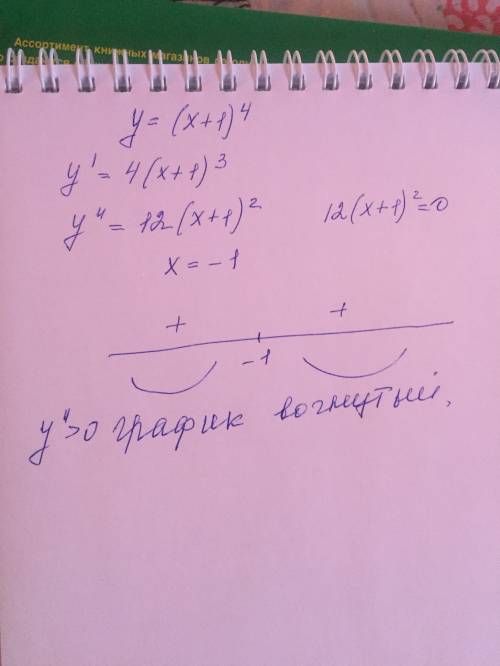 Ассортимент книжных магазинов
y = (x+1)^4
y' = 4(x+1)^3
y'' = 12(x+1)^2
12(x+1)^2 = 0
x = -1
+ +
-1
y''>0 график вогнутый.